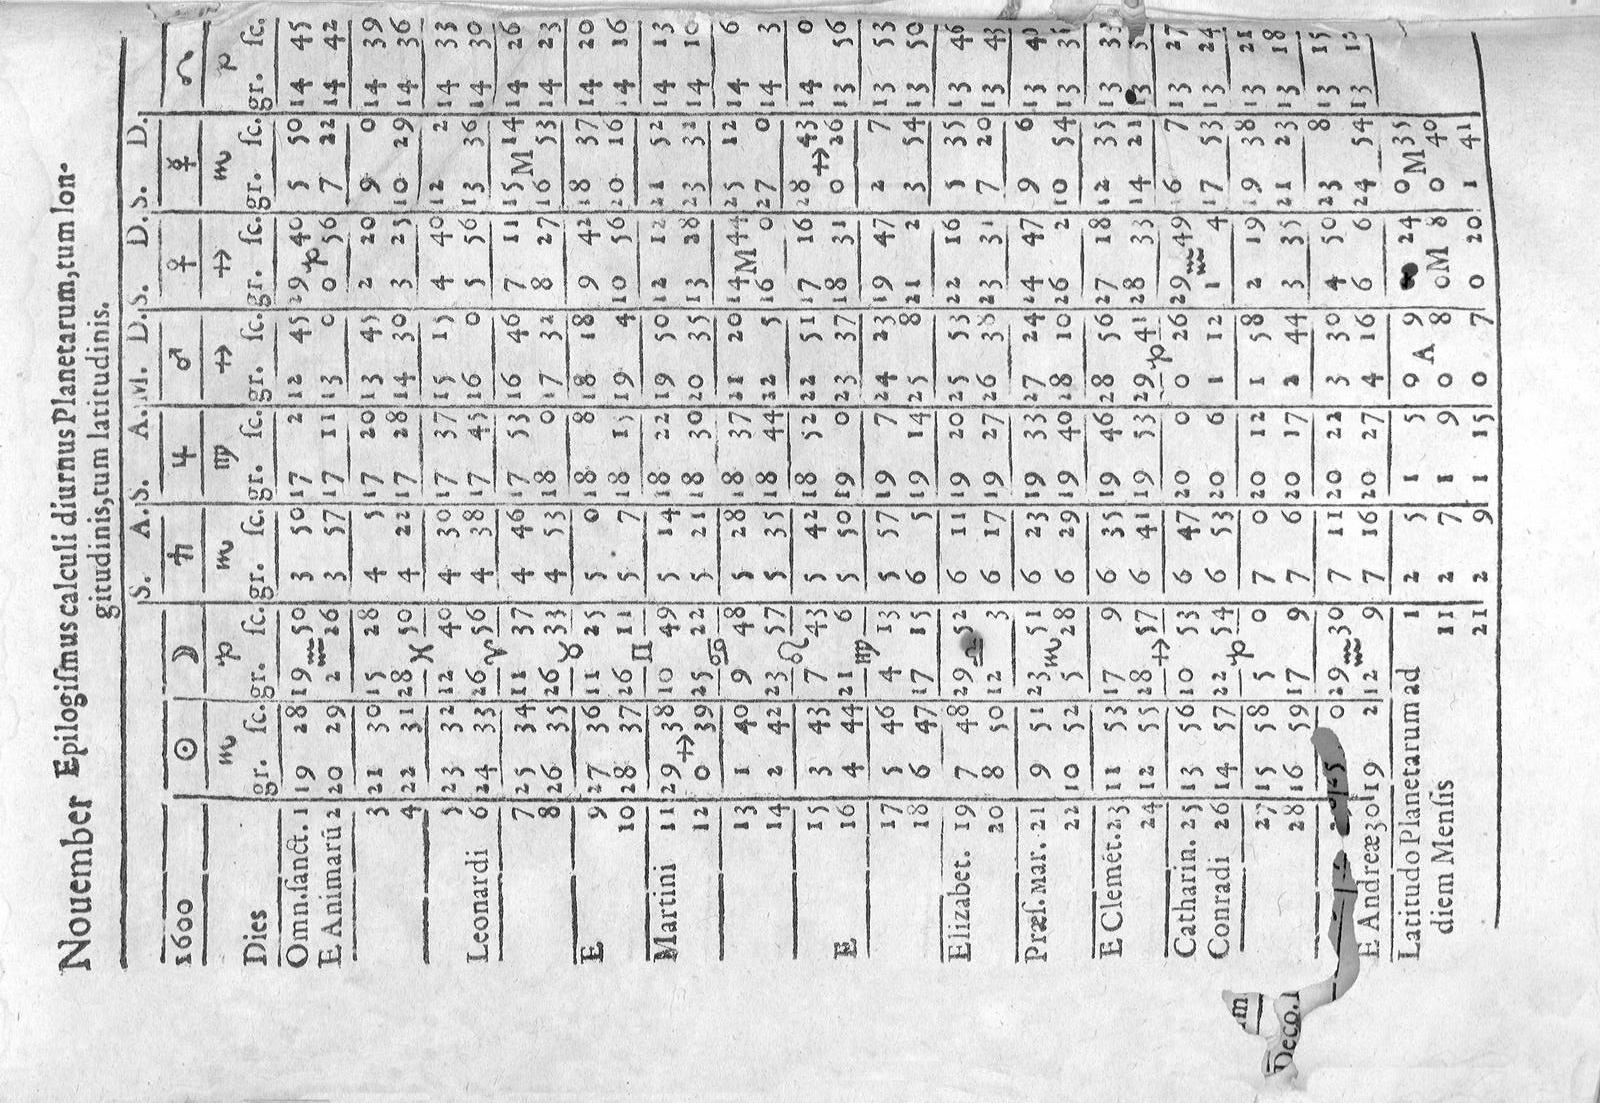 Nouember Epilogiſmus calculi diurnus Planetarum, tum lon-
gitudinis, tum latitudinis.
S. A. S. A. M. D. S. D. S. D.
1600 ☉ ☽ ♄ ♃ ♂ ♀ ☿ ☊
♏ ♑ ♏ ♍ ♐ ♐ ♏ ♑
Dies gr. ſc. gr. ſc. gr. ſc. gr. ſc. gr. ſc. gr. ſc. gr. ſc. gr. ſc.
Omn.ſanct. 1 19 28 19 50 3 50 17 2 12 45 29 40 5 50 14 45
E Animarū 2 20 29 ♒ 2 26 3 57 17 11 13 0 ♑ 0 56 7 22 14 42
3 21 30 15 28 4 5 17 20 13 45 2 20 9 0 14 39
4 22 31 28 50 4 22 17 28 14 30 3 25 10 29 14 36
5 23 32 ♓ 12 40 4 30 17 37 15 15 4 40 12 2 14 33
Leonardi 6 24 33 26 56 4 38 17 45 16 0 5 56 13 36 14 30
7 25 34 ♈ 11 37 4 46 17 53 16 46 7 11 15 M 14 14 26
8 26 35 26 33 4 53 18 0 17 32 8 27 16 53 14 23
E 9 27 36 ♉ 11 25 5 0 18 8 18 18 9 42 18 37 14 20
10 28 37 26 11 5 7 18 15 19 4 10 56 20 16 14 16
Martini 11 29 38 ♊ 10 49 5 14 18 22 19 50 12 12 21 52 14 13
12 ♐ 0 39 25 22 5 21 18 30 20 35 13 28 23 32 14 10
13 1 40 ♋ 9 48 5 28 18 37 21 20 14 M 44 25 12 14 6
14 2 42 23 57 5 35 18 44 22 5 16 0 27 0 14 3
15 3 43 ♌ 7 43 5 42 18 52 22 51 17 16 28 43 14 0
E 16 4 44 21 6 5 50 19 0 23 37 18 31 ♐ 0 26 13 56
17 5 46 ♍ 4 13 5 57 19 7 24 23 19 47 2 7 13 53
18 6 47 17 15 6 5 19 14 25 8 21 2 3 54 13 50
Elizabet. 19 7 48 29 52 6 11 19 20 25 53 22 16 5 35 13 46
20 8 50 ♎ 12 3 6 17 19 27 26 38 23 31 7 20 13 43
Præſ. Mar. 21 9 51 23 51 6 23 19 33 27 24 24 47 9 6 13
22 10 52 ♏ 5 28 6 29 19 40 28 10 26 2 10 54 13
E Clemēt. 23 11 53 17 9 6 35 19 46 28 56 27 18 12 35 13
24 12 55 28 57 6 41 19 53 29 41 28 33 14 21 13
Catharin. 25 13 56 ♐ 10 53 6 47 20 0 ♑ 0 26 29 49 16 7 13 27
Conradi 26 14 57 22 54 6 53 20 6 1 12 ♒ 1 4 17 53 13 24
27 15 58 ♑ 5 0 7 0 20 12 1 58 2 19 19 38 13 21
28 16 59 17 9 7 6 20 17 2 44 3 35 21 23 13 18
0 29 30 7 11 20 22 3 30 4 50 23 8 13 15
E Andreæ 30 19 2 ♒ 12 9 7 16 20 27 4 16 6 6 24 54 13
Latitudo Planetarum ad 1 2 5 1 5 0 9 24 0 M 35
diem Menſis 11 2 7 1 9 0 A 8 0 M 8 0 40
21 2 9 1 15 0 7 0 20 1 41
Deco.